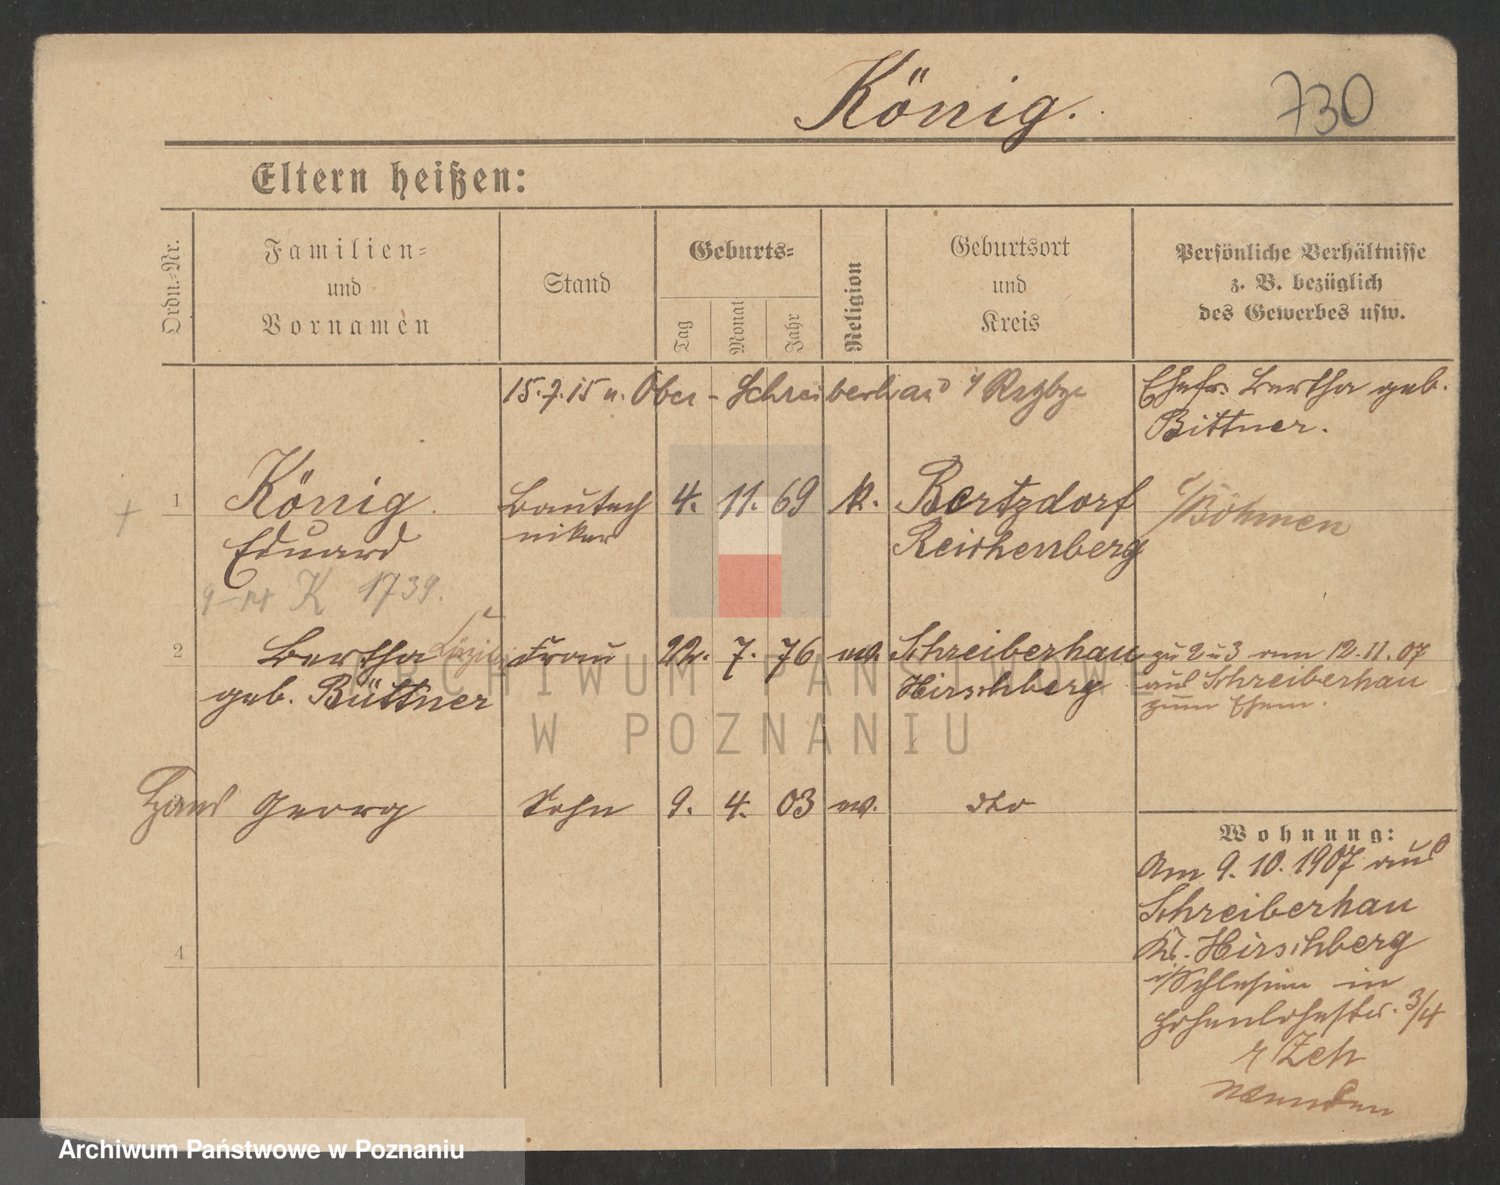 König.
730
Eltern heißen:
Ordn.-Nr.
Familien-
und
Vornamen
Stand
Geburts-
Tag
Monat
Jahr
Religion
Geburtsort
und
Kreis
Persönliche Verhältnisse
z. B. bezüglich
des Gewerbes usw.
15.7.15 n. Ober-Schreiberhau i/ Rsgbge
Ehefr. Bertha geb.
Bittner.
1
König
Eduard
Bautech
niker
4. 11. 69
k.
Bertzdorf
Reichenberg
i/Böhmen
K 1739.
2
Bertha
geb. Büttner
Frau
22. 7. 76
ev.
Schreiberhau
Hirschberg
zu 2 u 3 am 12.11.07
aus Schreiberhau
zum Ehem.
Hans Georg
Sohn
9. 4. 03
ev.
dto
4
Wohnung:
Am 9.10.1907 aus
Schreiberhau
Kr. Hirschberg
i/Schlesien in
Hohenlohestr. 3/4
Zeh
ARCHIWUM PAŃSTWOWE
W POZNANIU
Archiwum Państwowe w Poznaniu